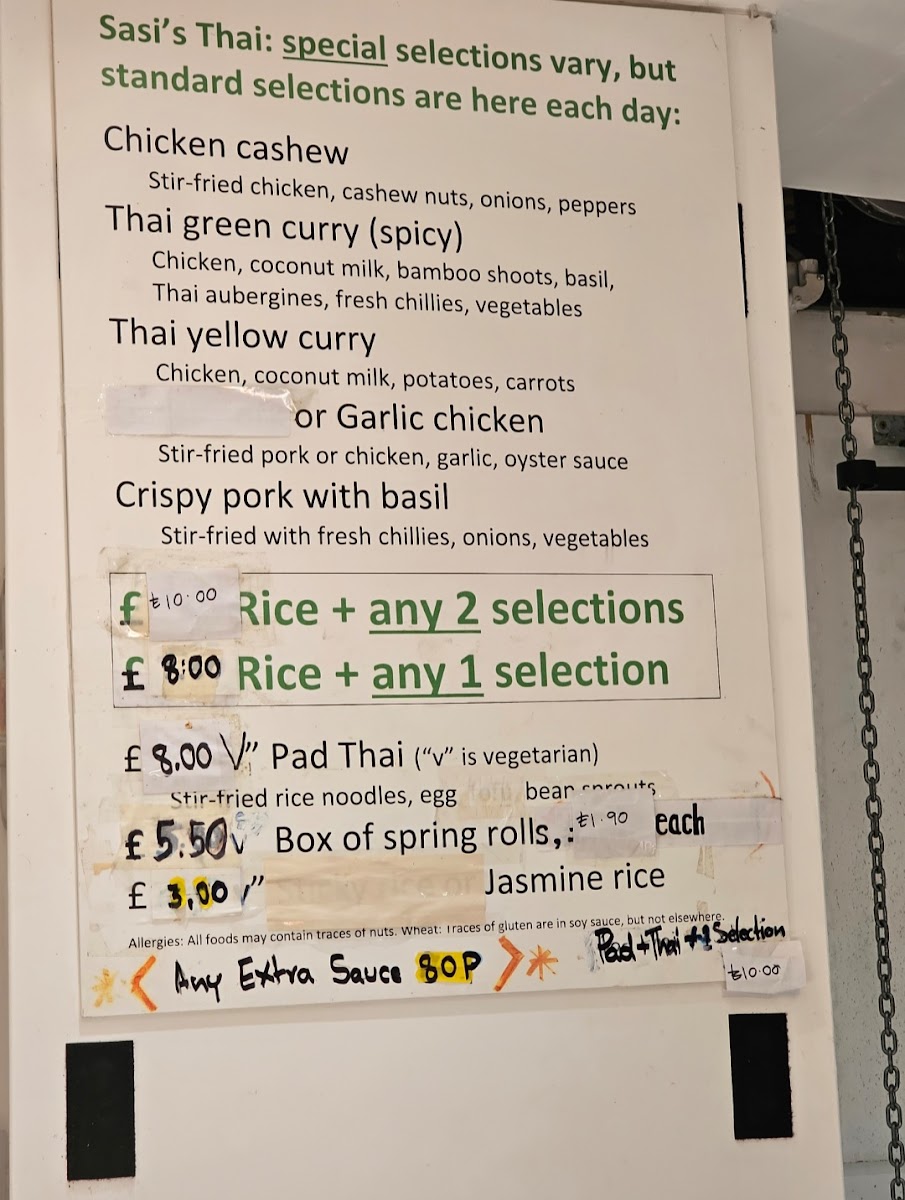 Sasi's Thai: special selections vary, but
standard selections are here each day:
Chicken cashew
Stir-fried chicken, cashew nuts, onions, peppers
Thai green curry (spicy)
Chicken, coconut milk, bamboo shoots, basil,
Thai aubergines, fresh chillies, vegetables
Thai yellow curry
Chicken, coconut milk, potatoes, carrots
or Garlic chicken
Stir-fried pork or chicken, garlic, oyster sauce
Crispy pork with basil
Stir-fried with fresh chillies, onions, vegetables
£ £10.00 Rice + any 2 selections
£ 8:00 Rice + any 1 selection
£ 8.00 V" Pad Thai ("v" is vegetarian)
Stir-fried rice noodles, egg bean sprouts
£ 5.50 v Box of spring rolls, : £1.90 each
£ 3,00 " Jasmine rice
Allergies: All foods may contain traces of nuts. Wheat: Traces of gluten are in soy sauce, but not elsewhere.
Any Extra Sauce 80P
Pad+Thai +1 Selection
£10.00